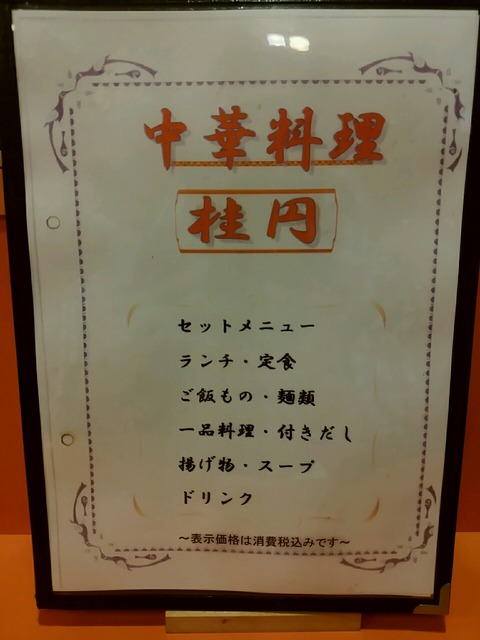 中華料理
桂円
セットメニュー
ランチ・定食
ご飯もの・麺類
一品料理・付きだし
揚げ物・スープ
ドリンク
～表示価格は消費税込みです～